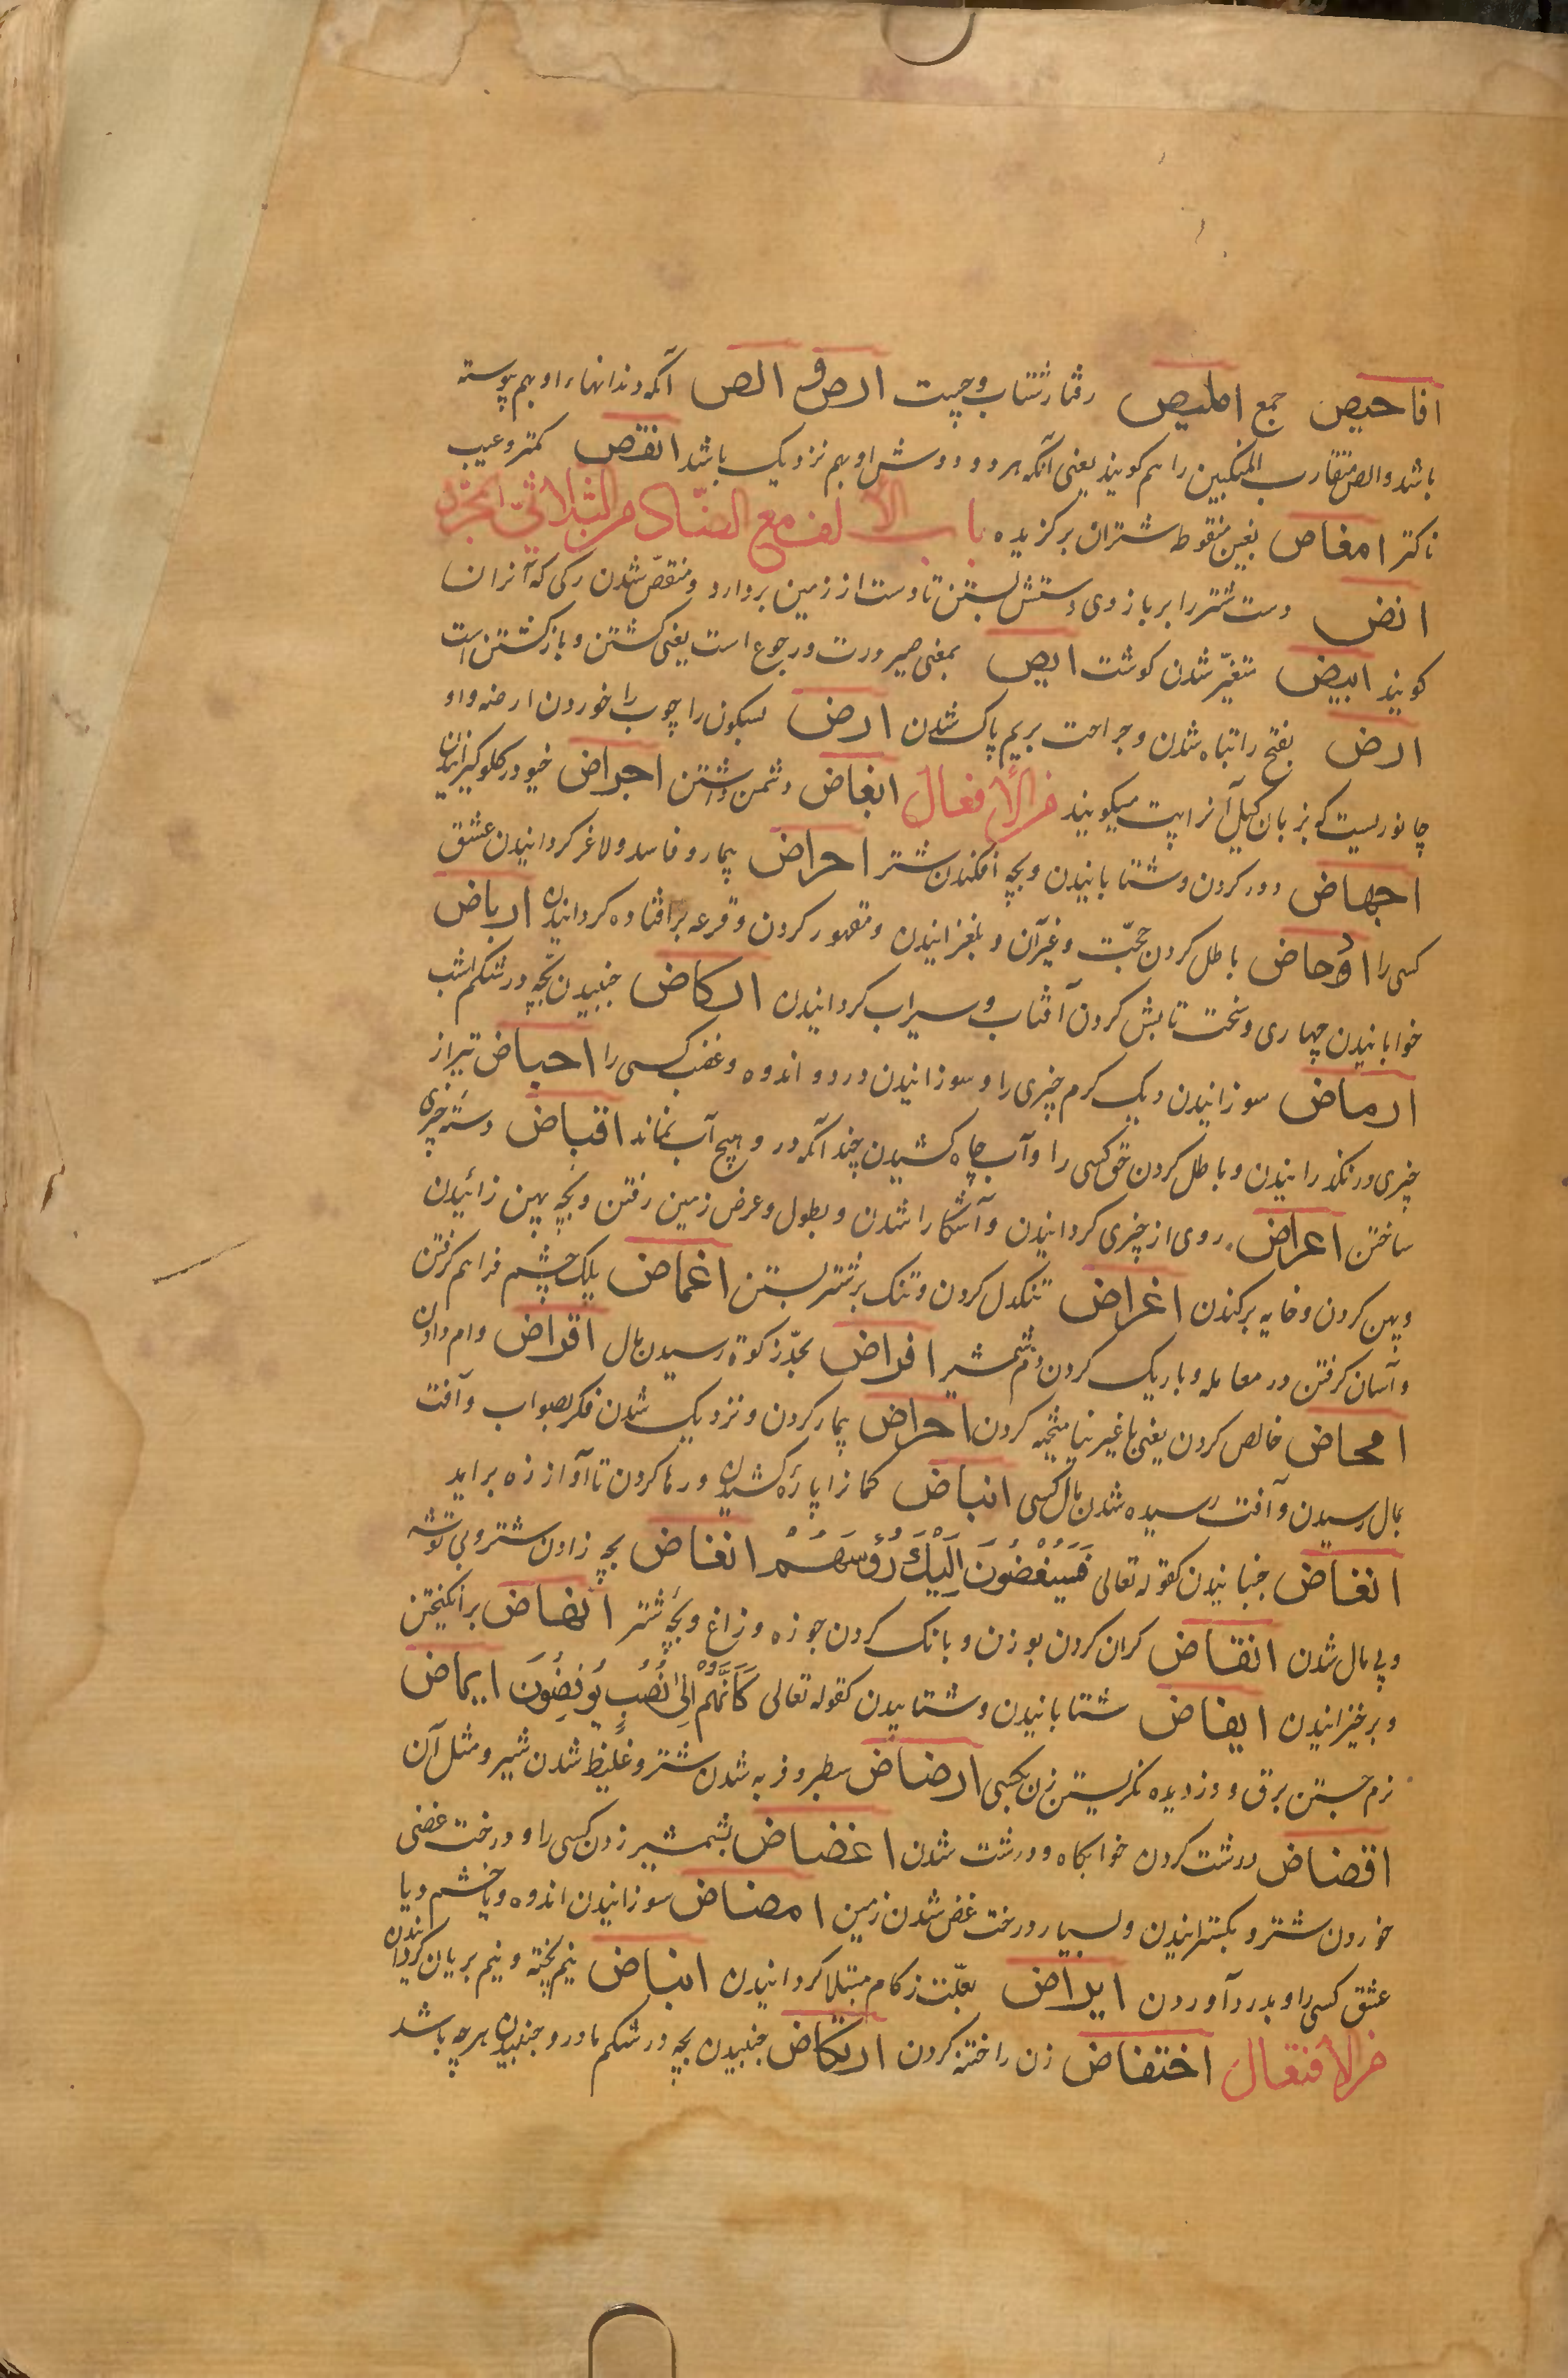 افاحیص جمع املیص رفتار شتاب و چست ارص و الص آنکه دندانهاء او بهم پیوسته
باشد و الص متقارب المنکبین را هم کویند یعنی آنکه هر دو دوش او بهم نزدیک باشد انقص کمتر و عیب
ناکتر امغاص بغین منقوطه شتران برکزیده باب الالف مع الضاد من الثلاثی المجرد
انض دست شتر را بر بازوی دستش بستن تا دست از زمین بردارد و منقصّ شدن رکی که آنرا ن
کویند ابیض متغیّر شدن کوشت ایض بمعنی صیرورت و رجوع است یعنی کشتن و باز کشتن است
ارض بفتح را تباه شدن و جراحت بریم پاک شدن ارض بسکون را چوب را خوردن ارضه و او
جانوریست که بزبان کیل آنرا پت میکویند من الأفعال ابغاض دشمن داشتن اجراض خیو در کلو کیرانیدن
اجهاض دور کردن و شتابانیدن و بچه افکندن شتر احراض بیمار و فاسد و لاغر کردانیدن عشق
کسی را ادحاض باطل کردن حجّت و غیر آن و بلغزانیدن و مقهور کردن و قرعه بر افتاده کردانیدن ارباض
خوابانیدن چهاری و سخت تابش کردن آفتاب و سیراب کردانیدن ارکاض جنبیدن بچّه در شکم اسب
ارماض سوزانیدن ریک کرم چیزی را و سوزانیدن درد و اندوه و غضب کسی را احباض تیر از
چیزی در نکذرانیدن و باطل کردن حق کسی را و آب چاه کشیدن چندانکه در و هیچ آب نماند اقباض دسته چیزی
ساختن اعراض روی از چیزی کردانیدن و آشکارا شدن و بطول و عرض زمین رفتن و بچّه پهن زائیدن
و پهن کردن و خایه برکندن اغراض تنکدل کردن و تنک بر شتر بستن اغماض پلک چشم فراهم کرفتن
و آسان کرفتن در معامله و باریک کردن دم شمشیر افراض بحدّ زکوة رسیدن مال اقراض وام دادن
امحاض خالص کردن یعنی با غیر نیامیخته کردن احراض بیمار کردن و نزدیک شدن فکر بصواب و آفت
بمال رسیدن و آفت رسیده شدن مال کسی انباض کمانرا پاره کشیدن و رها کردن تا آواز زه براید
انغاض جنبانیدن کقوله تعالی فَسَیُنْغِضُونَ اِلَیْکَ رُؤُسَهُمْ انفاض بچه زادن شتر و بی توشه
و بی مال شدن انقاض کران کردن بوزن و بانک کردن جوزه و زاغ و بچّه شتر انهاض برانکیختن
و برخیزانیدن ایفاض شتابانیدن و شتابیدن کقوله تعالی کَاَنَّهُمْ اِلیٰ نُصُبٍ یُوفِضُونَ ایماض
نرم جستن برق و دزدیده نکریستن زن بکسی ارضاض سطبر و فربه شدن شتر و غلیظ شدن شیر و مثل آن
اقضاض درشت کردن خوابکاه و درشت شدن اغضاض بشمشیر زدن کسی را و درخت غضی
خوردن شتر و بکسترانیدن و بسیار درخت غض شدن زمین امضاض سوزانیدن اندوه و یا خشم و یا
عشق کسی را و بدرد آوردن ایراض بعلّت زکام مبتلا کردانیدن انباض نیم پخته و نیم بریان کردانیدن
من الأفتعال اختفاض زن را ختنه کردن ارتکاض جنبیدن بچه در شکم مادر و جنبیدن هر چه باشد